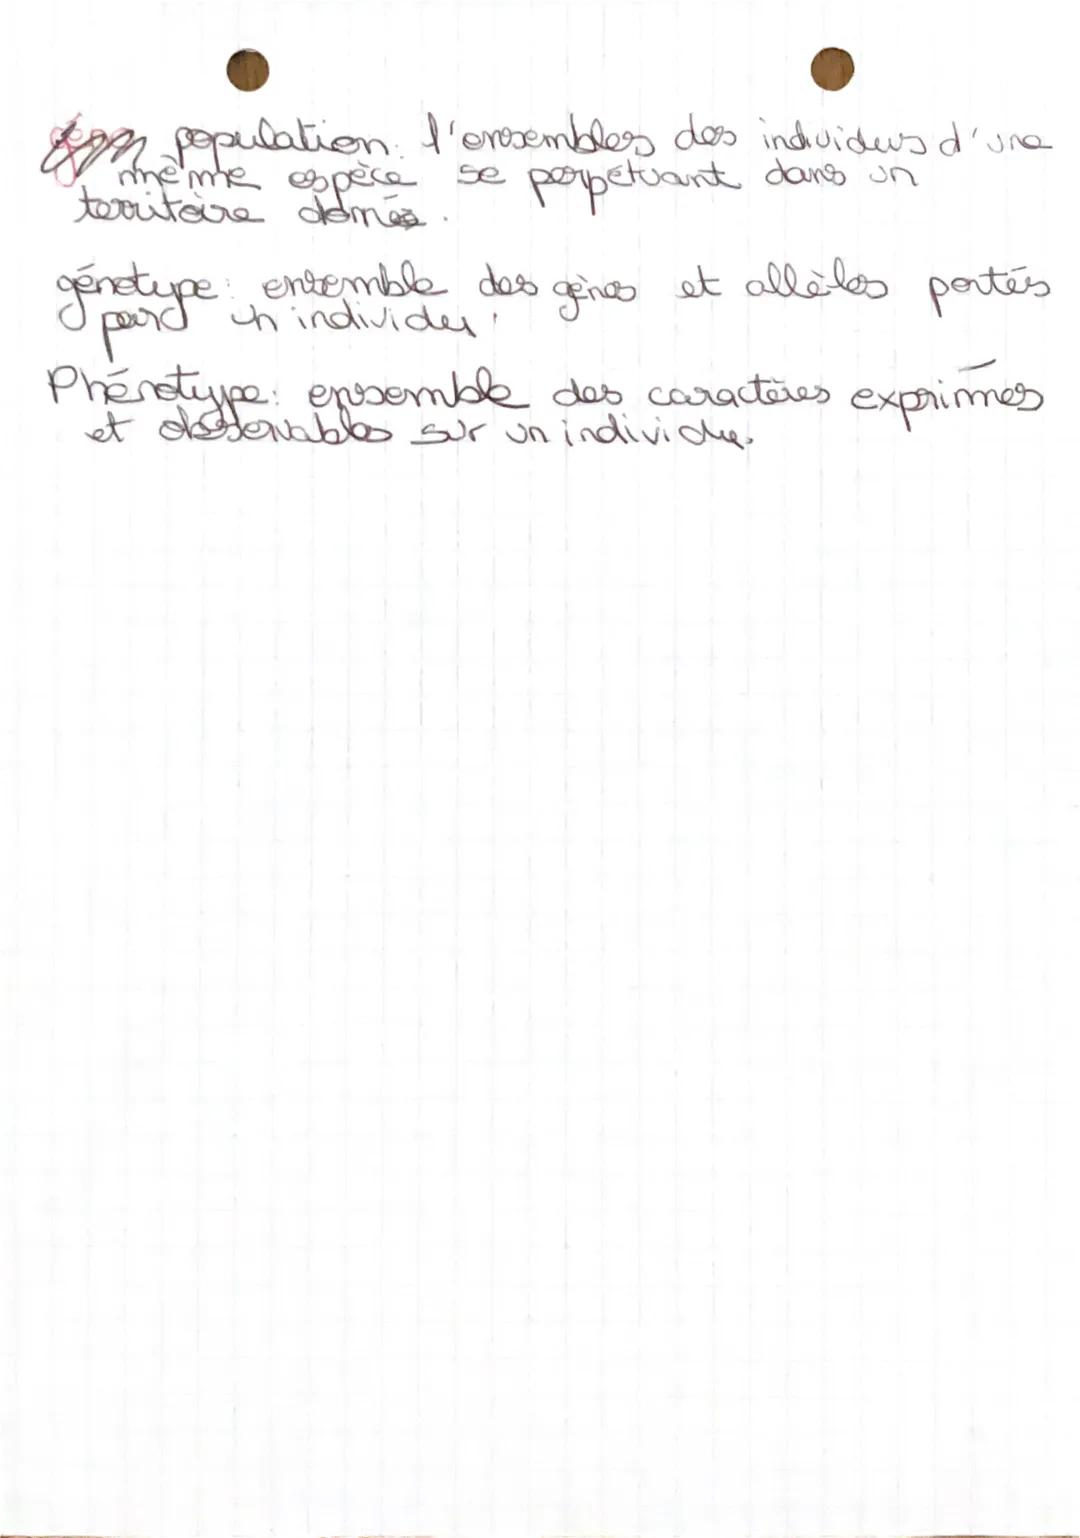 population: l'ensembles des individus d'une
même espèce se perpétuant dans un
territoire donnés.
génotype: ensemble des gènes et allèles portés
par un individu.
Phénotype: ensemble des caractères exprimmés
et observables sur un individu.